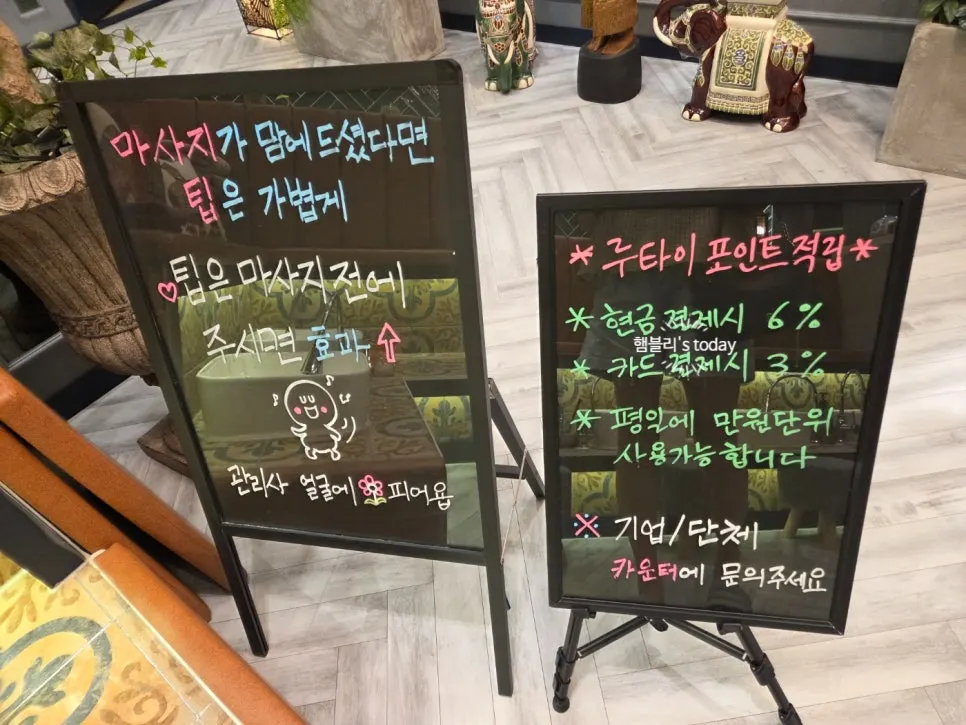 마사지가 맘에드셨다면
팁은 가볍게
♡팁은마사지전에
주시면 효과⇧
관리사 얼굴에 피어욥
*루타이포인트적립*
*현금결제시 6%
햄블리's today
*카드결제시 3%
*평일에 만원단위
사용가능합니다
※기업/단체
카운터에 문의주세요